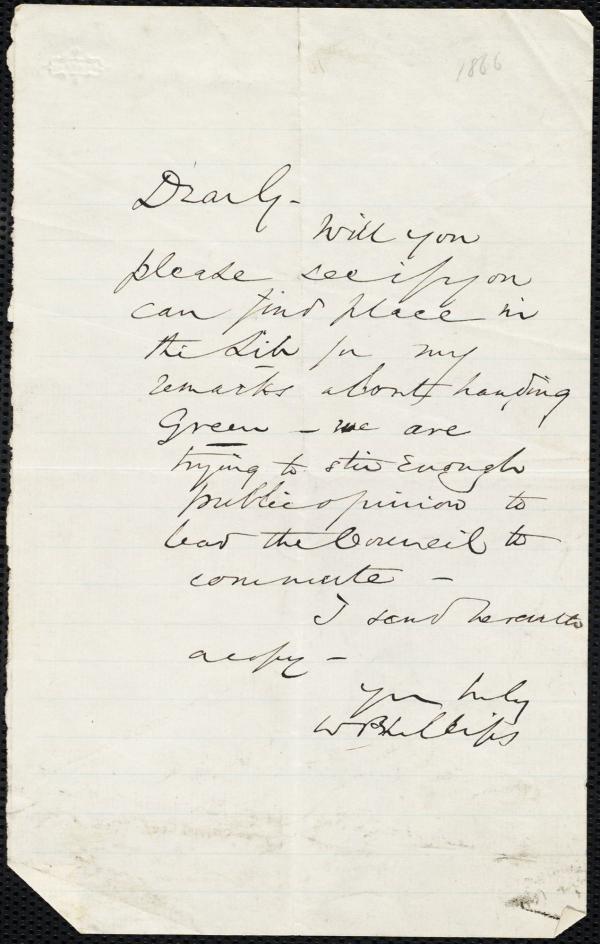 1866
Dear G -
Will you
please see if you
can find place in
the Lib for my
remarks about hanging
Green - we are
trying to stir enough
public opinion to
lead the Council to
commute -
I send herewith
a copy -
Yrs truly
W Phillips